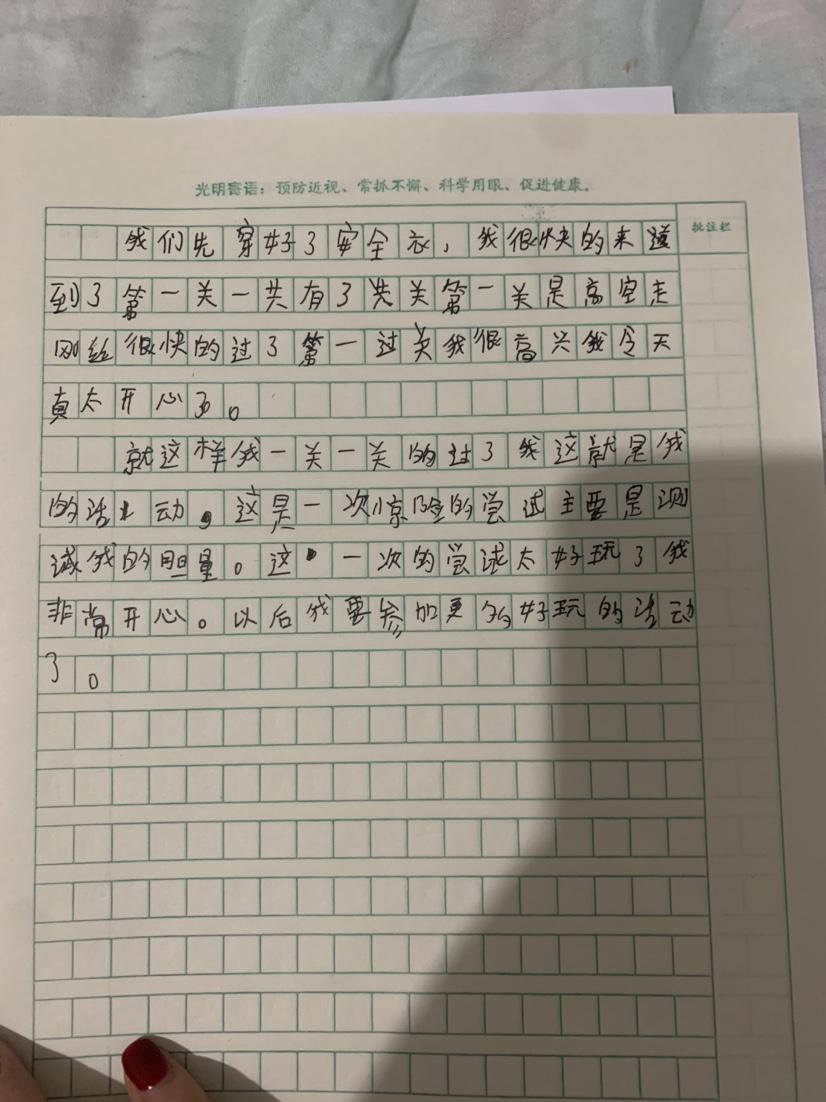 光明寄语：预防近视、常抓不懈、科学用眼、促进健康。
批注栏
我们先穿好了安全衣，我很快的来道
到了第一关一共有了先关第一关是高空走
刚丝很快的过了第一过关我很高兴我今天
真太开心了。
就这样我一关一关的过了我这就是我
的活动。这是一次惊险的尝试主要是测
诚我的胆量。这一次的尝试太好玩了我
非常开心。以后我要参加更多好玩的活动
了。